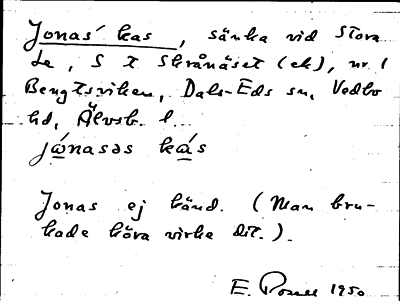 Jonas' kas, sänka vid Stora
Le, S t Skrånäset (ek), nr 1
Bengtsviken, Dals-Eds sn, Vedbo
hd, Älvsb. l.
jónasəs kás
Jonas ej känd. (Man bru-
kade köra virke dit.).
E. 1950